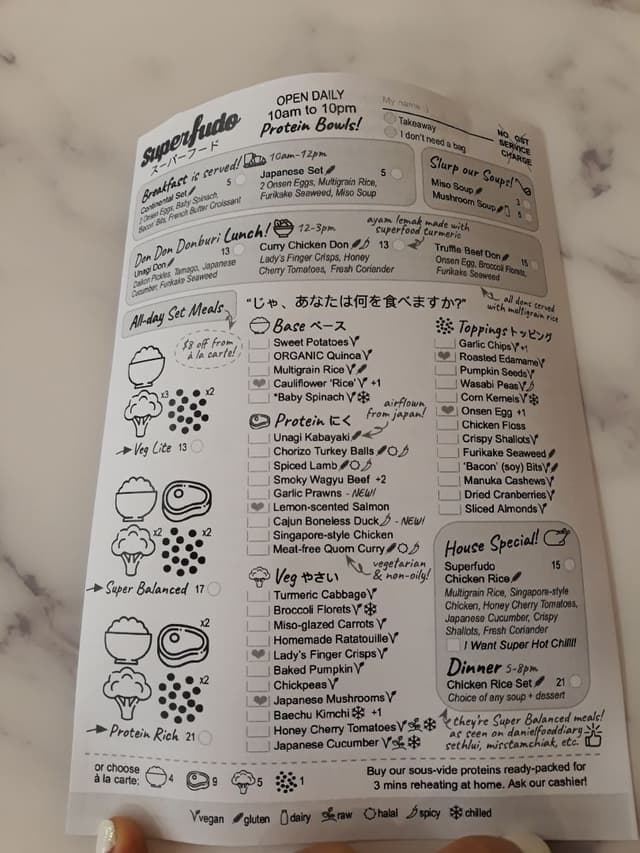 superfudo
スーパーフード
OPEN DAILY
10am to 10pm
Protein Bowls!
My name :)
Takeaway
I don't need a bag
NO GST
SERVICE
CHARGE
Breakfast is served! 10am-12pm
Continental Set 5
2 Onsen Eggs, Baby Spinach,
Bacon' Bits, French Butter Croissant
Japanese Set 5
2 Onsen Eggs, Multigrain Rice,
Furikake Seaweed, Miso Soup
Slurp our Soups!
Miso Soup 3
Mushroom Soup 5
Don Don Donburi Lunch! 12-3pm
ayam lemak made with
superfood turmeric
Unagi Don 13
Daikon Pickles, Tamago, Japanese
Cucumber, Furikake Seaweed
Curry Chicken Don 13
Lady's Finger Crisps, Honey
Cherry Tomatoes, Fresh Coriander
Truffle Beef Don 15
Onsen Egg, Broccoli Florets,
Furikake Seaweed
all dons served
with multigrain rice
All-day Set Meals
"じゃ、あなたは何を食べますか?"
$8 off from
à la carte!
x3
x2
Veg Lite 13
x2
x2
Super Balanced 17
x2
x2
Protein Rich 21
Base ベース
Sweet Potatoes
ORGANIC Quinoa
Multigrain Rice
Cauliflower 'Rice' +1
*Baby Spinach
airflown
from japan!
Protein にく
Unagi Kabayaki
Chorizo Turkey Balls
Spiced Lamb
Smoky Wagyu Beef +2
Garlic Prawns - NEW!
Lemon-scented Salmon
Cajun Boneless Duck - NEW!
Singapore-style Chicken
Meat-free Quorn Curry
vegetarian
& non-oily!
Veg やさい
Turmeric Cabbage
Broccoli Florets
Miso-glazed Carrots
Homemade Ratatouille
Lady's Finger Crisps
Baked Pumpkin
Chickpeas
Japanese Mushrooms
Baechu Kimchi +1
Honey Cherry Tomatoes
Japanese Cucumber
Toppings トッピング
Garlic Chips +1
Roasted Edamame
Pumpkin Seeds
Wasabi Peas
Corn Kernels
Onsen Egg +1
Chicken Floss
Crispy Shallots
Furikake Seaweed
'Bacon' (soy) Bits
Manuka Cashews
Dried Cranberries
Sliced Almonds
House Special!
Superfudo 15
Chicken Rice
Multigrain Rice, Singapore-style
Chicken, Honey Cherry Tomatoes,
Japanese Cucumber, Crispy
Shallots, Fresh Coriander
I Want Super Hot Chilli!
Dinner 5-8pm
Chicken Rice Set 21
Choice of any soup + dessert
they're Super Balanced meals!
as seen on danielfooddiary,
sethlui, misstamchiak, etc.
or choose
à la carte: 4 9 5 1
Buy our sous-vide proteins ready-packed for
3 mins reheating at home. Ask our cashier!
vegan gluten dairy raw halal spicy chilled